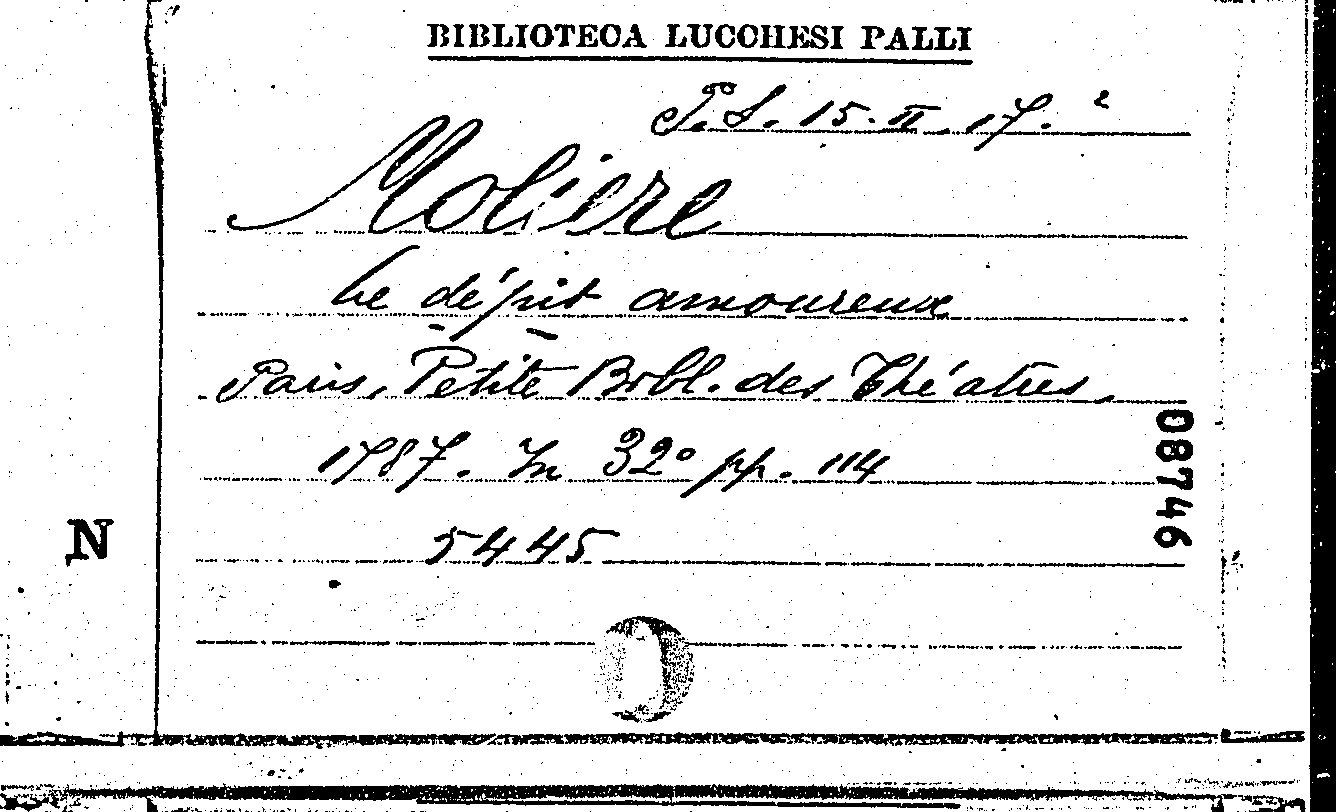 BIBLIOTECA LUCCHESI PALLI
P.S. 15. II. 17. ²
Molière
Le dépit amoureux
Paris, Petite Bibl. des Théatres,
1787. In 32° pp. 114
5445
N
08746